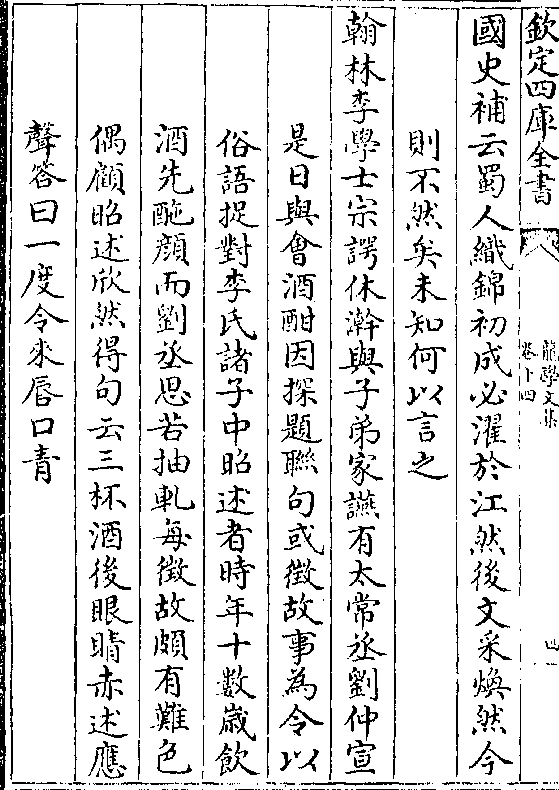 欽定四庫全書
龍學文集
卷十四
四
國史補云蜀人織錦初成必濯於江然後文采煥然今
則不然矣未知何以言之
翰林李學士宗諤休澣與子弟家讌有太常丞劉仲宣
是日與會酒酣因探題聯句或徵故事為令以
俗語捉對李氏諸子中昭述者時年十數歲飲
酒先酡顔而劉丞思若抽軋每徵故頗有難色
偶顧昭述欣然得句云三杯酒後眼睛赤述應
聲答曰一度令來唇口青